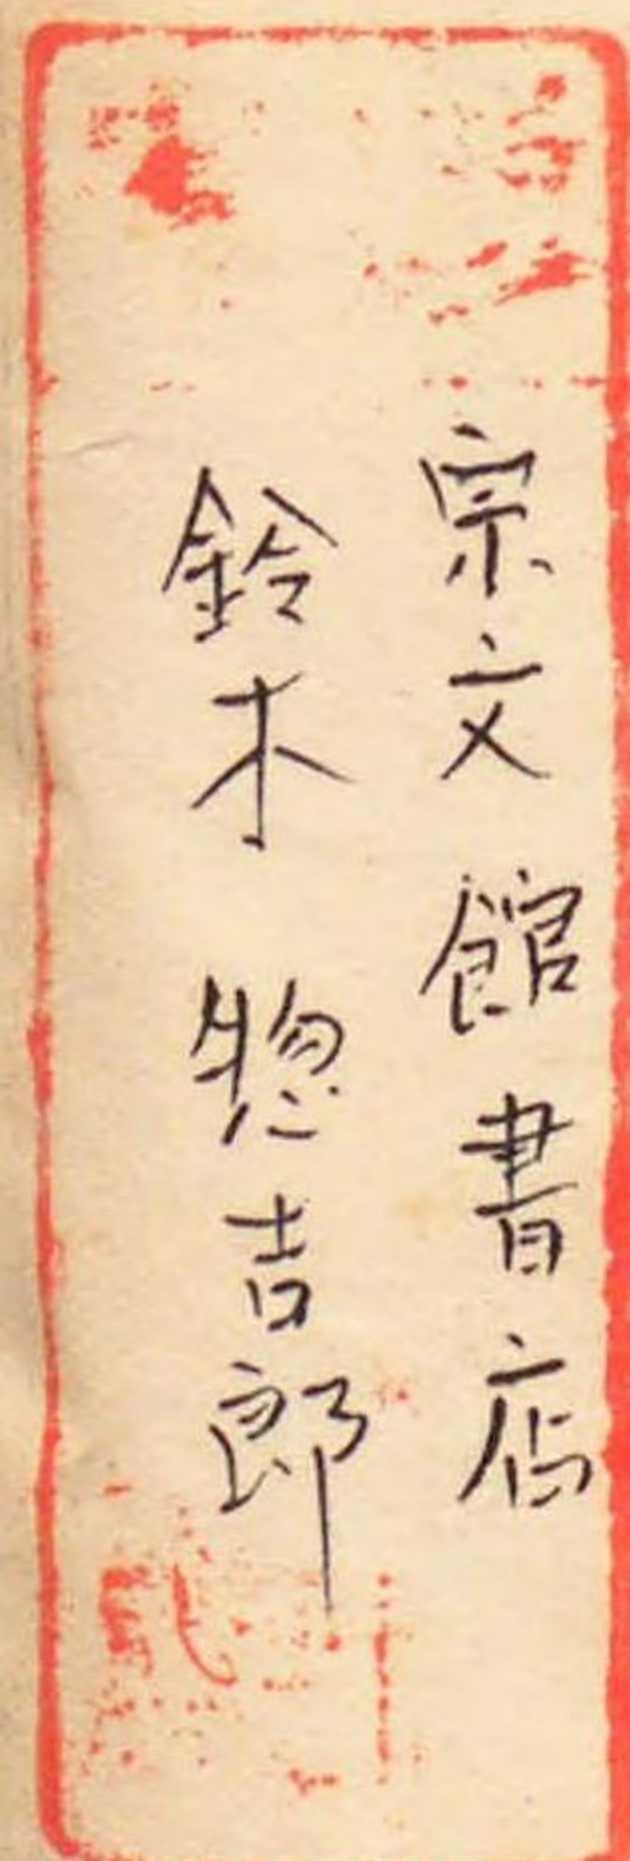 宗文館書店
鈴木惣吉郎